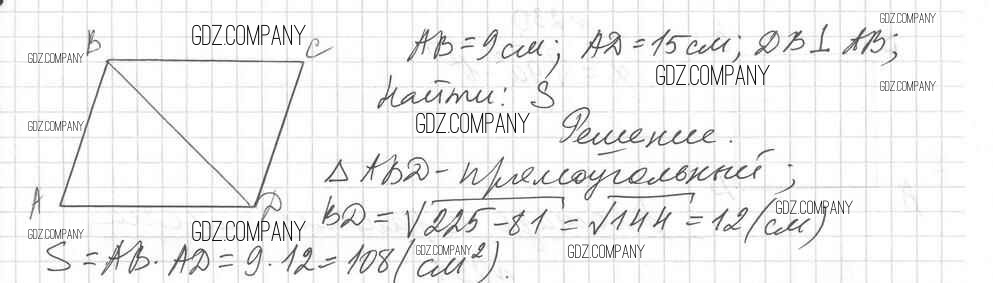 B C
A D
AB = 9 см; AD = 15 см; DB ⊥ AB;
Найти: S
Решение.
△ ABD - прямоугольный;
BD = √225 - 81 = √144 = 12 (см)
S = AB · AD = 9 · 12 = 108 (см²).
GDZ.COMPANY
GDZ.COMPANY
GDZ.COMPANY
GDZ.COMPANY
GDZ.COMPANY
GDZ.COMPANY
GDZ.COMPANY
GDZ.COMPANY
GDZ.COMPANY
GDZ.COMPANY
GDZ.COMPANY
GDZ.COMPANY